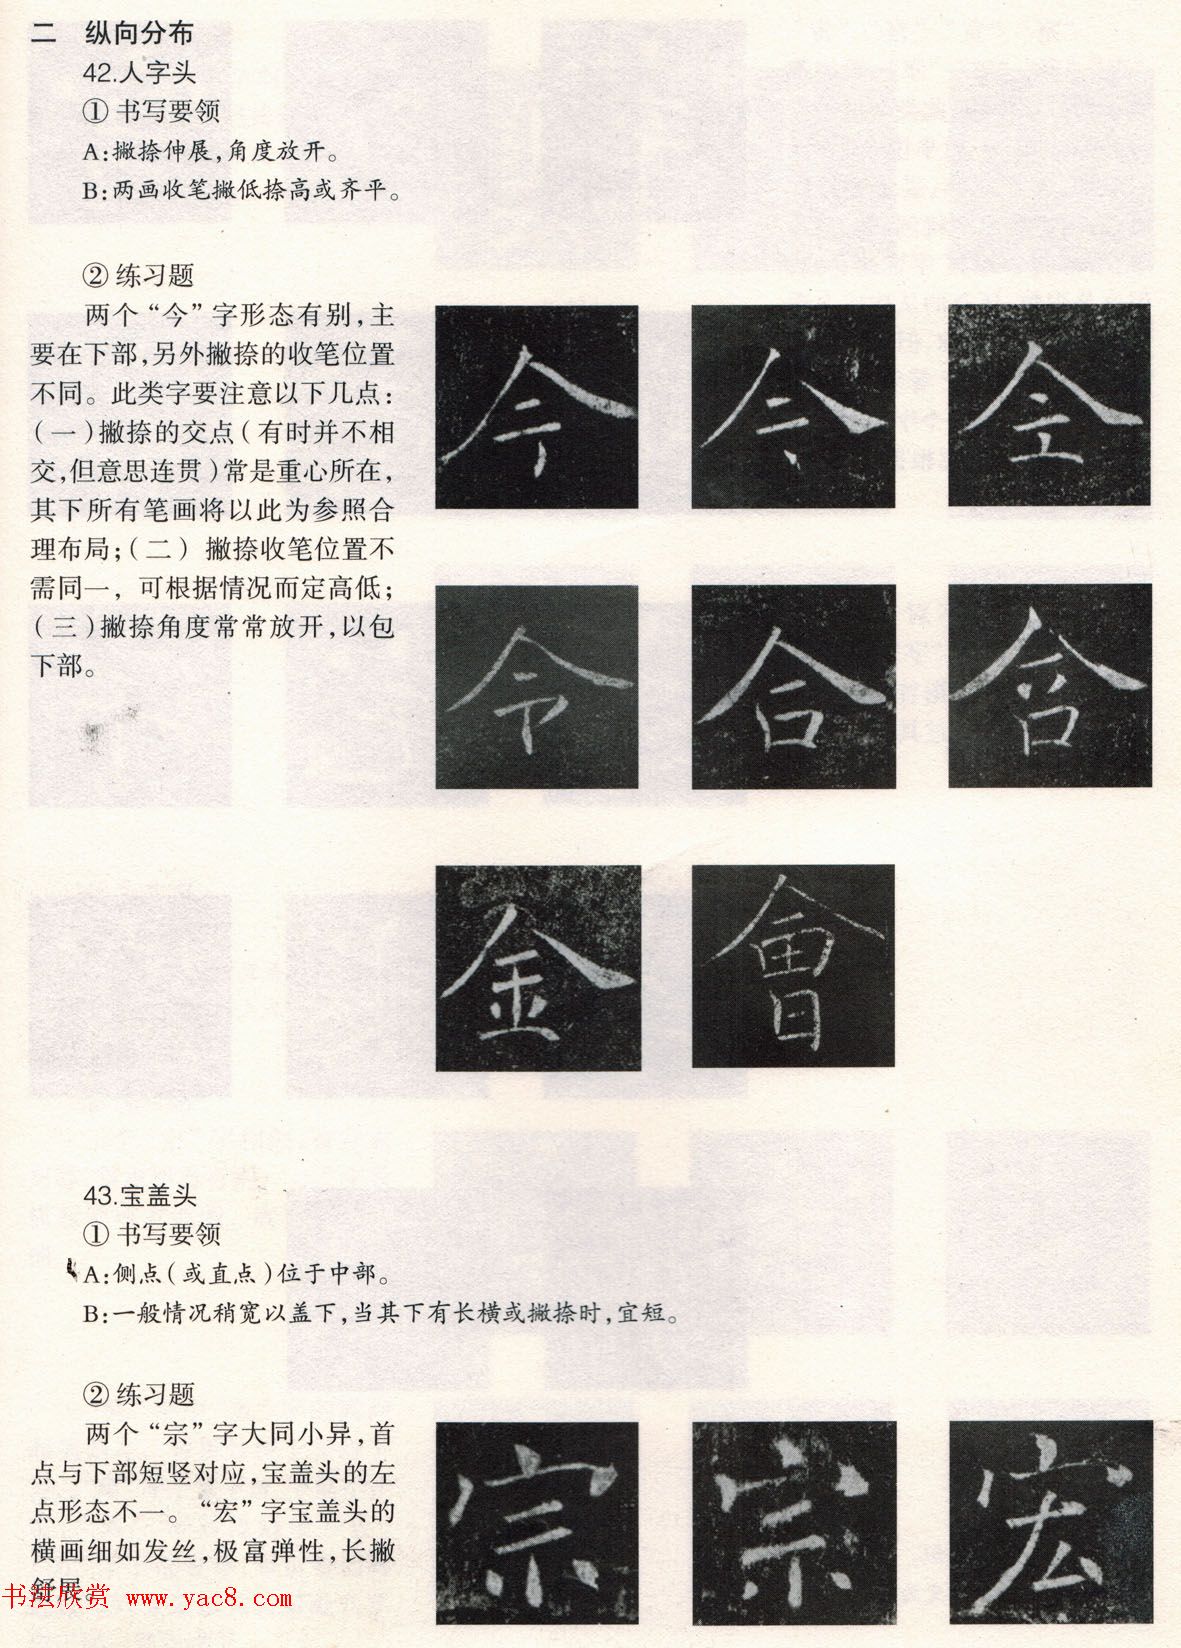 二 纵向分布
42.人字头
① 书写要领
A:撇捺伸展,角度放开。
B:两画收笔撇低捺高或齐平。
② 练习题
两个“今”字形态有别,主
要在下部,另外撇捺的收笔位置
不同。此类字要注意以下几点:
(一)撇捺的交点(有时并不相
交,但意思连贯)常是重心所在,
其下所有笔画将以此为参照合
理布局;(二) 撇捺收笔位置不
需同一, 可根据情况而定高低;
(三)撇捺角度常常放开,以包
下部。
今 今 全
令 合 含
金 會
43.宝盖头
① 书写要领
A:侧点(或直点)位于中部。
B:一般情况稍宽以盖下,当其下有长横或撇捺时,宜短。
② 练习题
两个“宗”字大同小异,首
点与下部短竖对应,宝盖头的左
点形态不一。“宏”字宝盖头的
横画细如发丝,极富弹性,长撇
舒展。
宗 宗 宏
书法欣赏 www.yac8.com